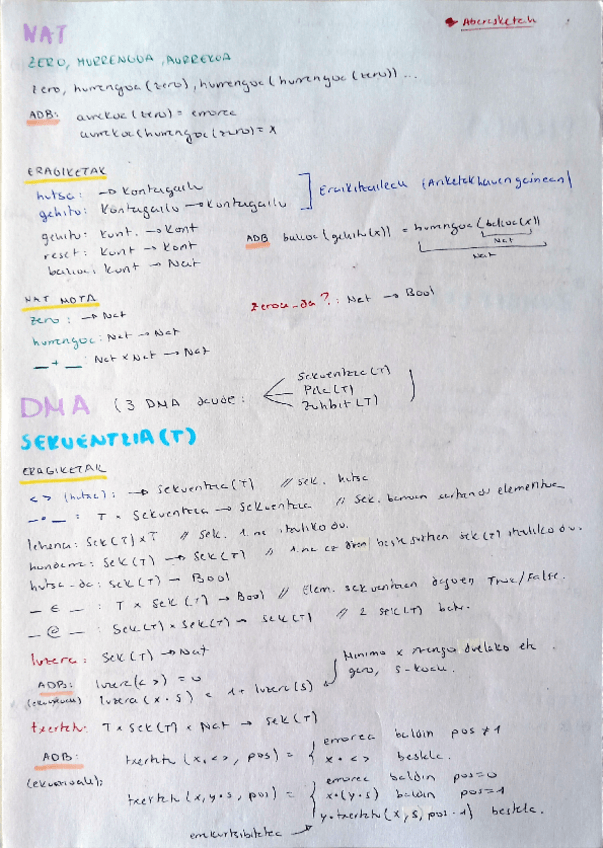 → Aberasketak
NAT
ZERO, HURRENGOA, AURREKOA
zero, hurrengoa(zero), hurrengoa(hurrengoa(zero)) ...
ADB: aurrekoa(zero) = errorea
aurrekoa(hurrengoa(zero)) = x
ERAGIKETAK
hutsa: → Kontagailu
gehitu: Kontagailu → Kontagailu
Eraikitzaileak (Ariketa honen gainean)
gehitu: Kont. → Kont
reset: Kont → Kont
balioa: Kont → Nat
ADB balioa(gehitu(x)) = hurrengoa(balioa(x))
Nat
Nat
NAT MOTA
zero: → Nat
hurrengoa: Nat → Nat
_ + _ : Nat x Nat → Nat
zeroa_da?: Nat → Bool
DMA (3 DMA daude:
Sekuentzia(T)
Pila(T)
Zuhbit(T)
)
SEKUENTZIA(T)
ERAGIKETAK
<> (hutsa): → Sekuentzia(T) // sek. hutsa
_•_ : T x Sekuentzia → Sekuentzia // Sek. baten sartzen du elementua
lehena: Sek(T) x T // sek. 1.na itzuliko du.
hondarra: Sek(T) → Sek(T) // 1.na ez diren beste guztien sek(T) itzuliko du.
hutsa-da: Sek(T) → Bool
_ ∈ _ : T x Sek(T) → Bool // Elem. sekuentzian dagoen True/False.
_ @ _ : Sek(T) x Sek(T) → Sek(T) // 2 Sek(T) batu.
luzera: Sek(T) → Nat
ADB: luzera(<>) = 0
(ekuazioak) luzera(x • s) = 1 + luzera(s)
Minimo x izango duelako eta
gero, s-koak.
txertatu: T x Sek(T) x Nat → Sek(T)
ADB:
(ekuazioak):
txertatu(x, <>, pos) = { errorea baldin pos ≠ 1
x • <> bestela.
txertatu(x, y•s, pos) = { errorea baldin pos=0
x•(y•s) baldin pos=1
y•txertatu(x, s, pos-1) bestela.
errekurtsibitatea →